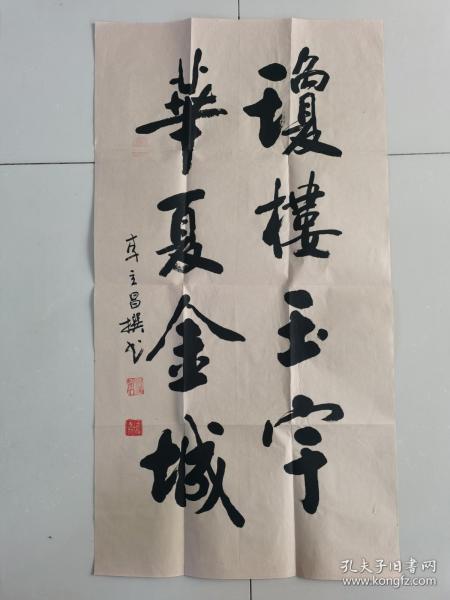 瓊樓玉宇
華夏金城
李立昌撰书
孔夫子旧书网
www.kongfz.com